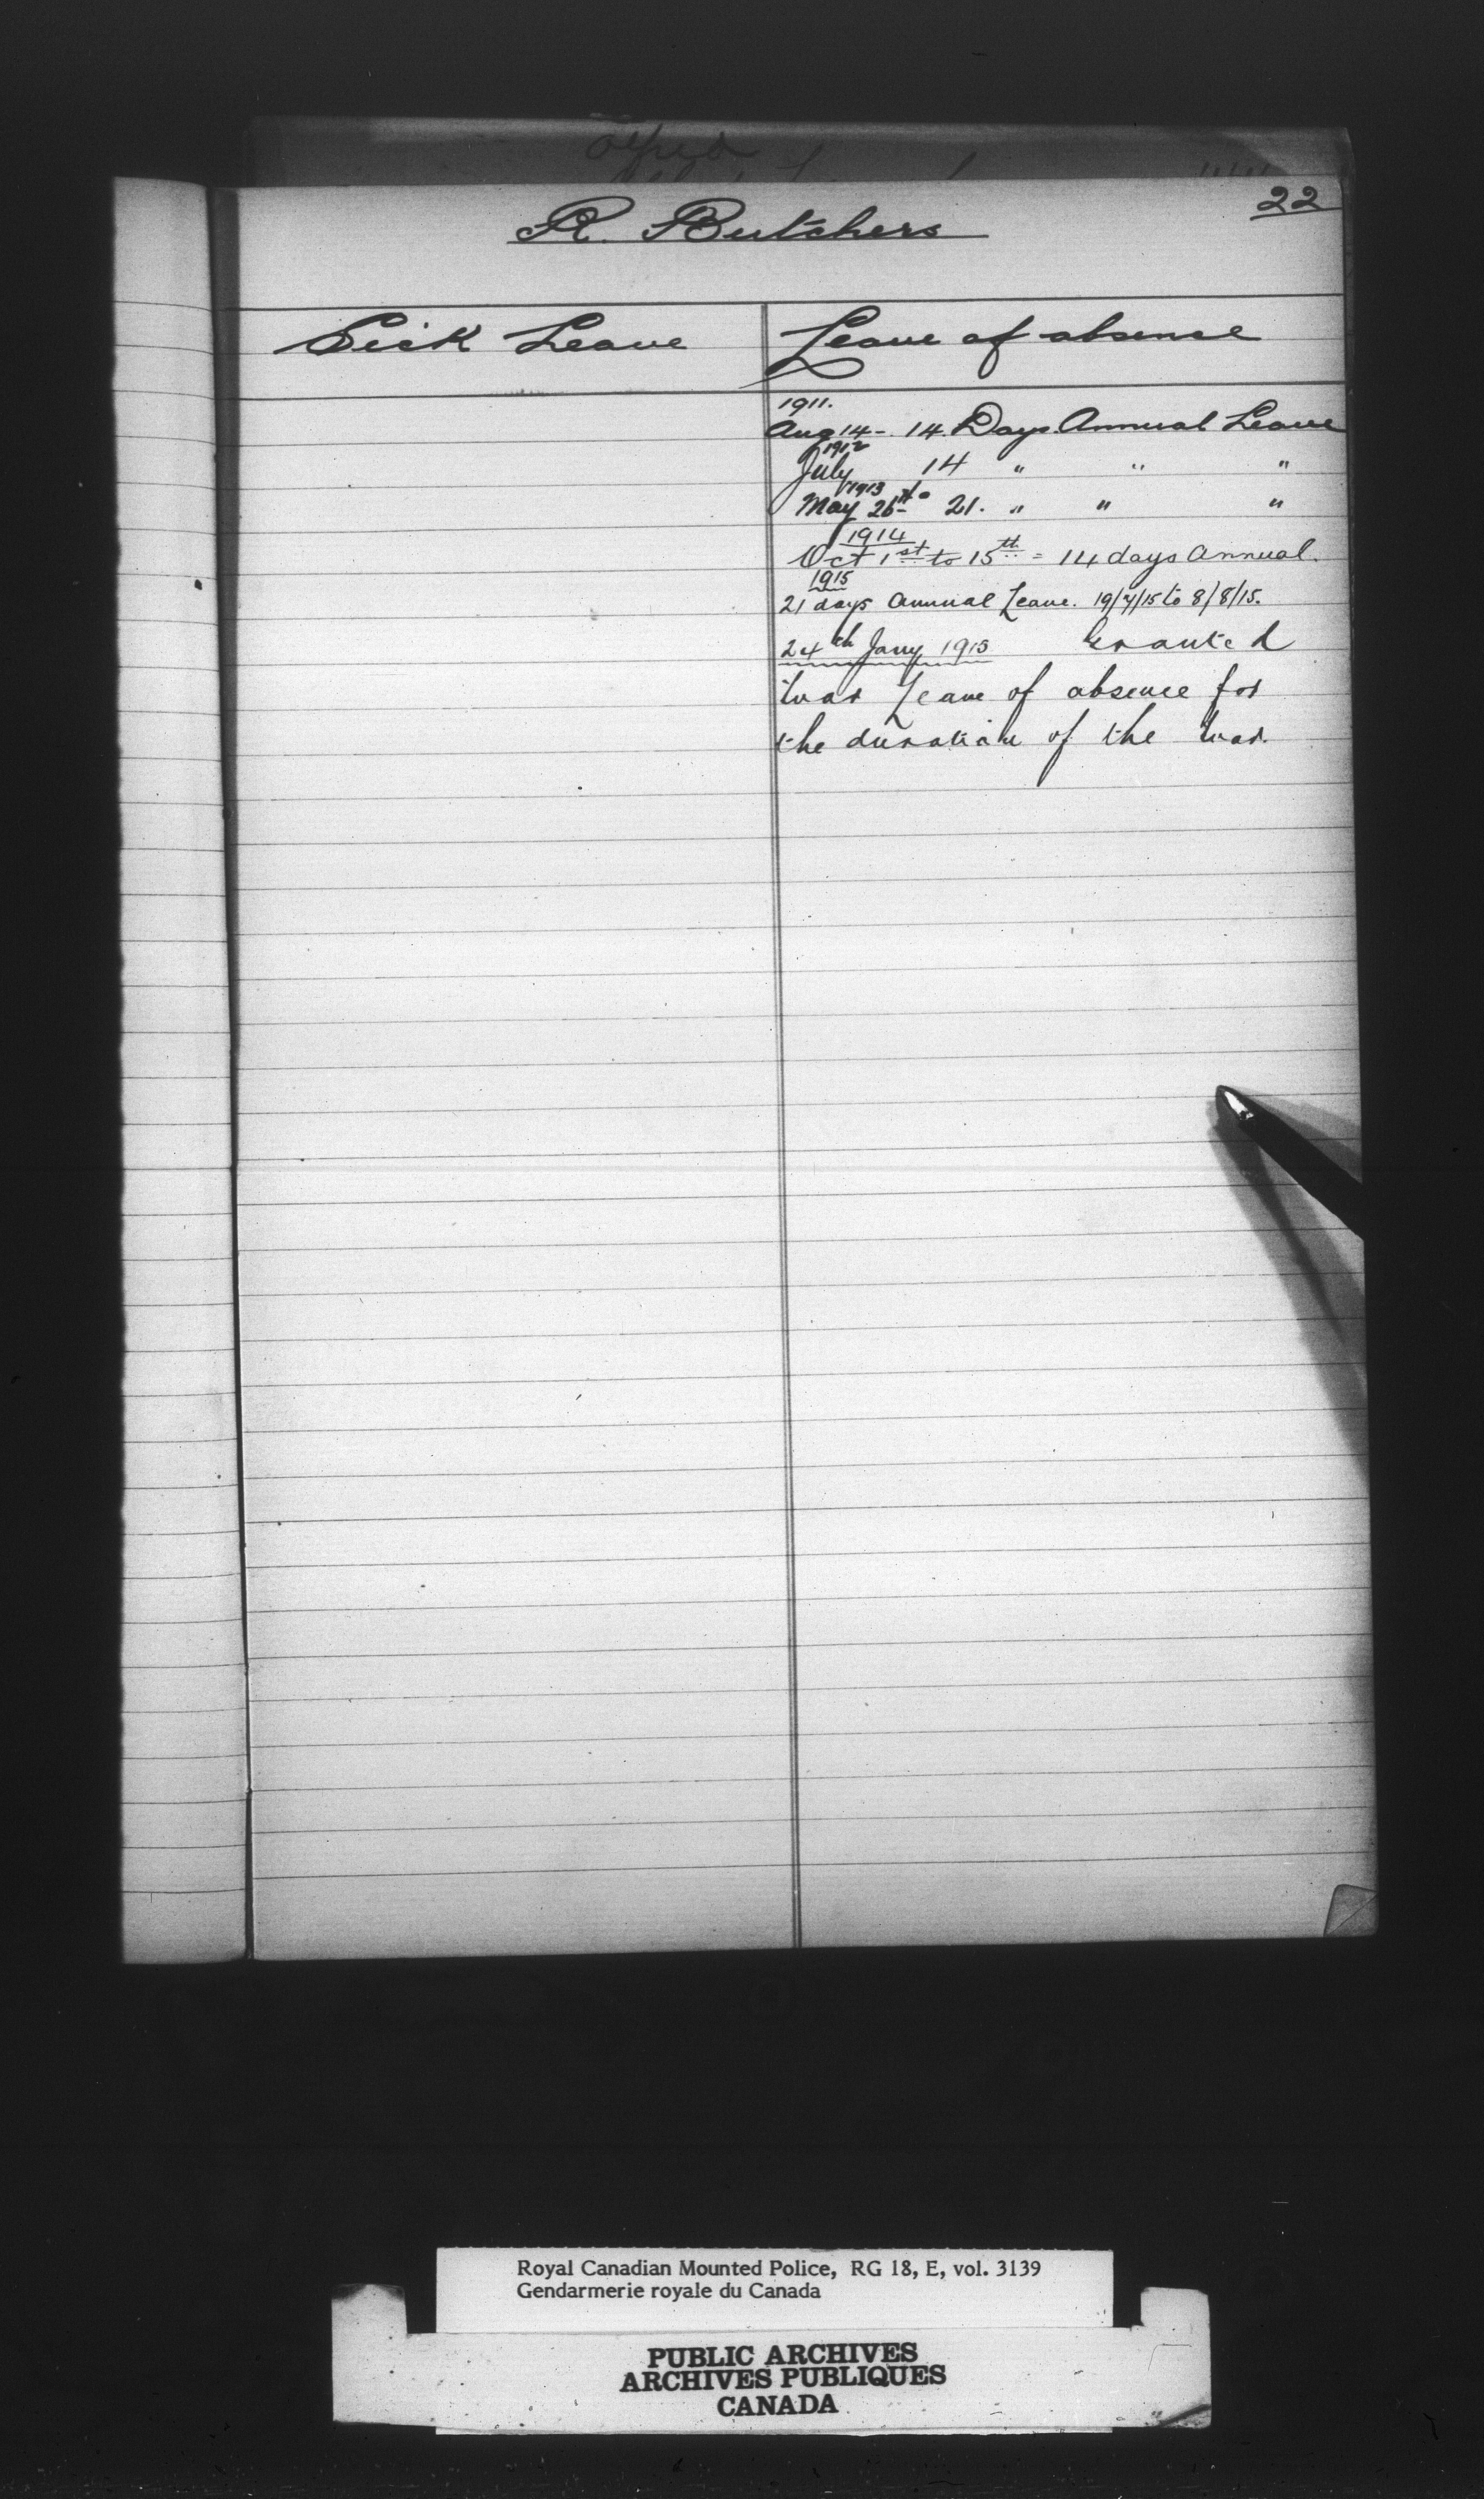 Alfred
22
R. Butchers
Sick Leave
Leave of absence
1911.
Aug 14 - 14 Days Annual Leave
1912
July 14 " " "
1913
May 26th 21. " " "
1914
Oct 1st to 15th = 14 days Annual.
1915
21 days Annual Leave. 19/7/15 to 8/8/15.
24th Jany 1915 Granted
War Leave of absence for
the duration of the War.
Royal Canadian Mounted Police, RG 18, E, vol. 3139
Gendarmerie royale du Canada
PUBLIC ARCHIVES
ARCHIVES PUBLIQUES
CANADA